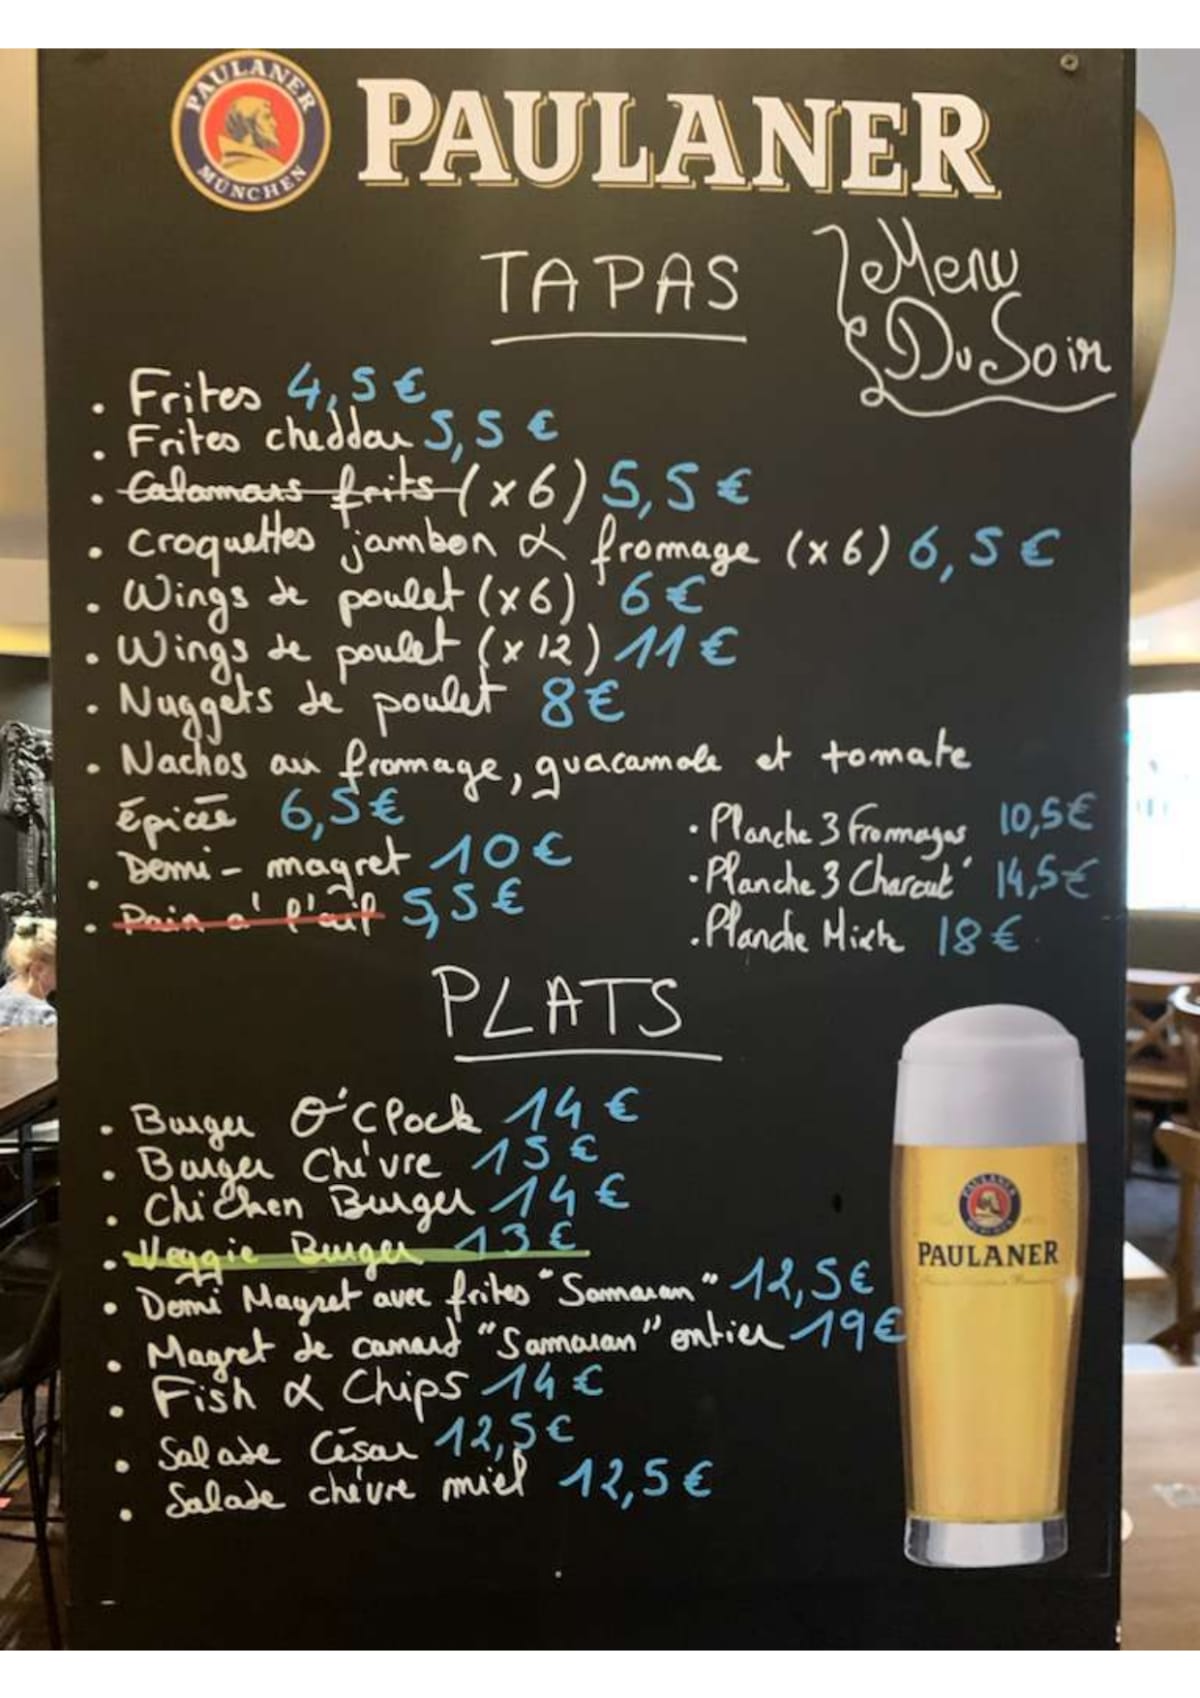 PAULANER
MÜNCHEN
PAULANER
TAPAS
Menu
Du Soir
. Frites 4,5 €
. Frites cheddar 5,5 €
. Calamars frits (x6) 5,5 €
. Croquettes jambon & fromage (x6) 6,5 €
. Wings de poulet (x6) 6 €
. Wings de poulet (x12) 11 €
. Nuggets de poulet 8 €
. Nachos au fromage, guacamole et tomate
épicée 6,5 €
. Demi-magret 10 €
. Pain à l'ail 5,5 €
. Planche 3 Fromages 10,5 €
. Planche 3 Charcut' 14,5 €
. Planche Mixte 18 €
PLATS
. Burger O'Clock 14 €
. Burger Chèvre 15 €
. Chicken Burger 14 €
. Veggie Burger 13 €
. Demi Magret avec frites "Samaran" 12,5 €
. Magret de canard "Samaran" entier 19 €
. Fish & Chips 14 €
. Salade César 12,5 €
. Salade chèvre miel 12,5 €
PAULANER